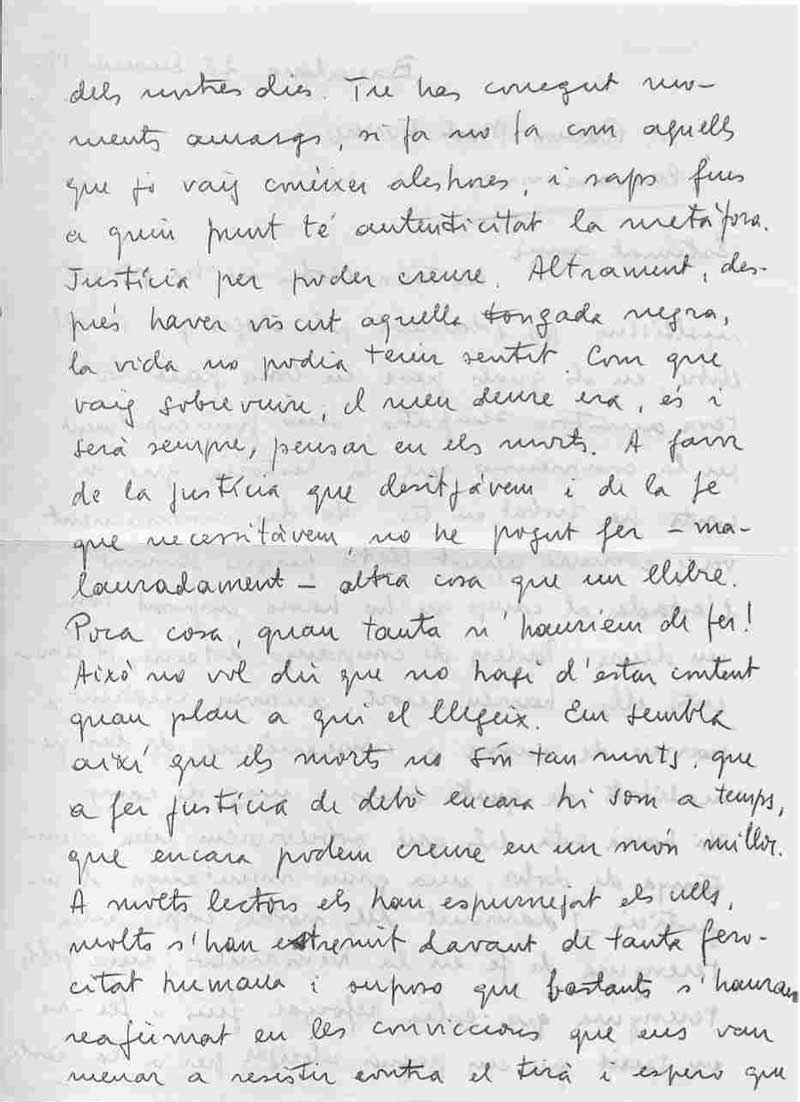 dels nostres dies. Tu has conegut mo-
ments amargs, si fa no fa com aquells
que jo vaig conèixer aleshores, i saps fins
a quin punt té autenticitat la metàfora.
Justícia per poder creure. Altrament, des-
prés haver viscut aquella tongada negra,
la vida no podia tenir sentit. Com que
vaig sobreviure, el meu deure era, és i
serà sempre, pensar en els morts. A favor
de la justícia que desitjàvem i de la fe
que necessitàvem, no he pogut fer – ma-
lauradament – altra cosa que un llibre.
Poca cosa, quan tanta n'hauríem de fer!
Això no vol dir que no hagi d'estar content
quan plau a qui el llegeix. Em sembla
així que els morts no són tan morts, que
a fer justícia de debò encara hi som a temps,
que encara podem creure en un món millor.
A molts lectors els han espurnejat els ulls,
molts s'han estremit davant de tanta fero-
citat humana i suposo que bastants s'hauran
reafirmat en les conviccions que ens van
menar a resistir contra el tirà i espero que